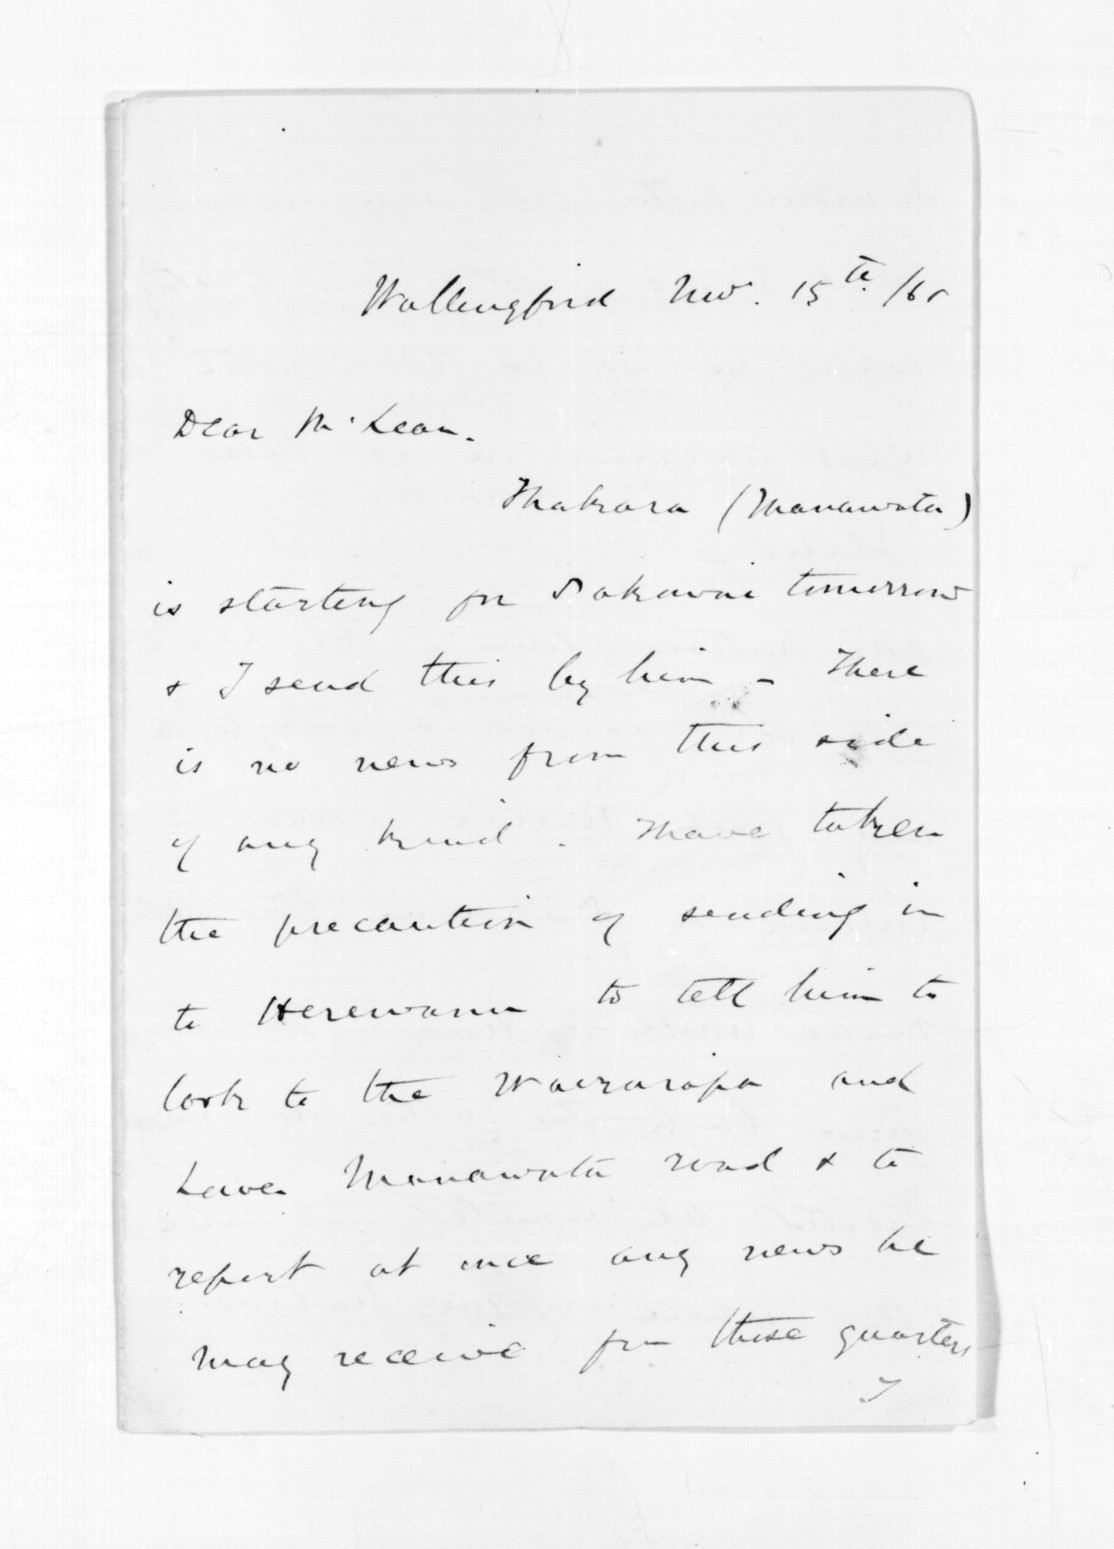 Wallingford Nov. 15th /65
Dear McLean.
(Manawatu)
is starting for Pakowai tomorrow
& I send this by him - There
is no news from this side
of any kind. I have taken
the precaution of sending in
to Herewanu to tell him to
look to the Wairarapa and
Lower Manawatu road & to
report at once any news he
may receive from those quarters
I